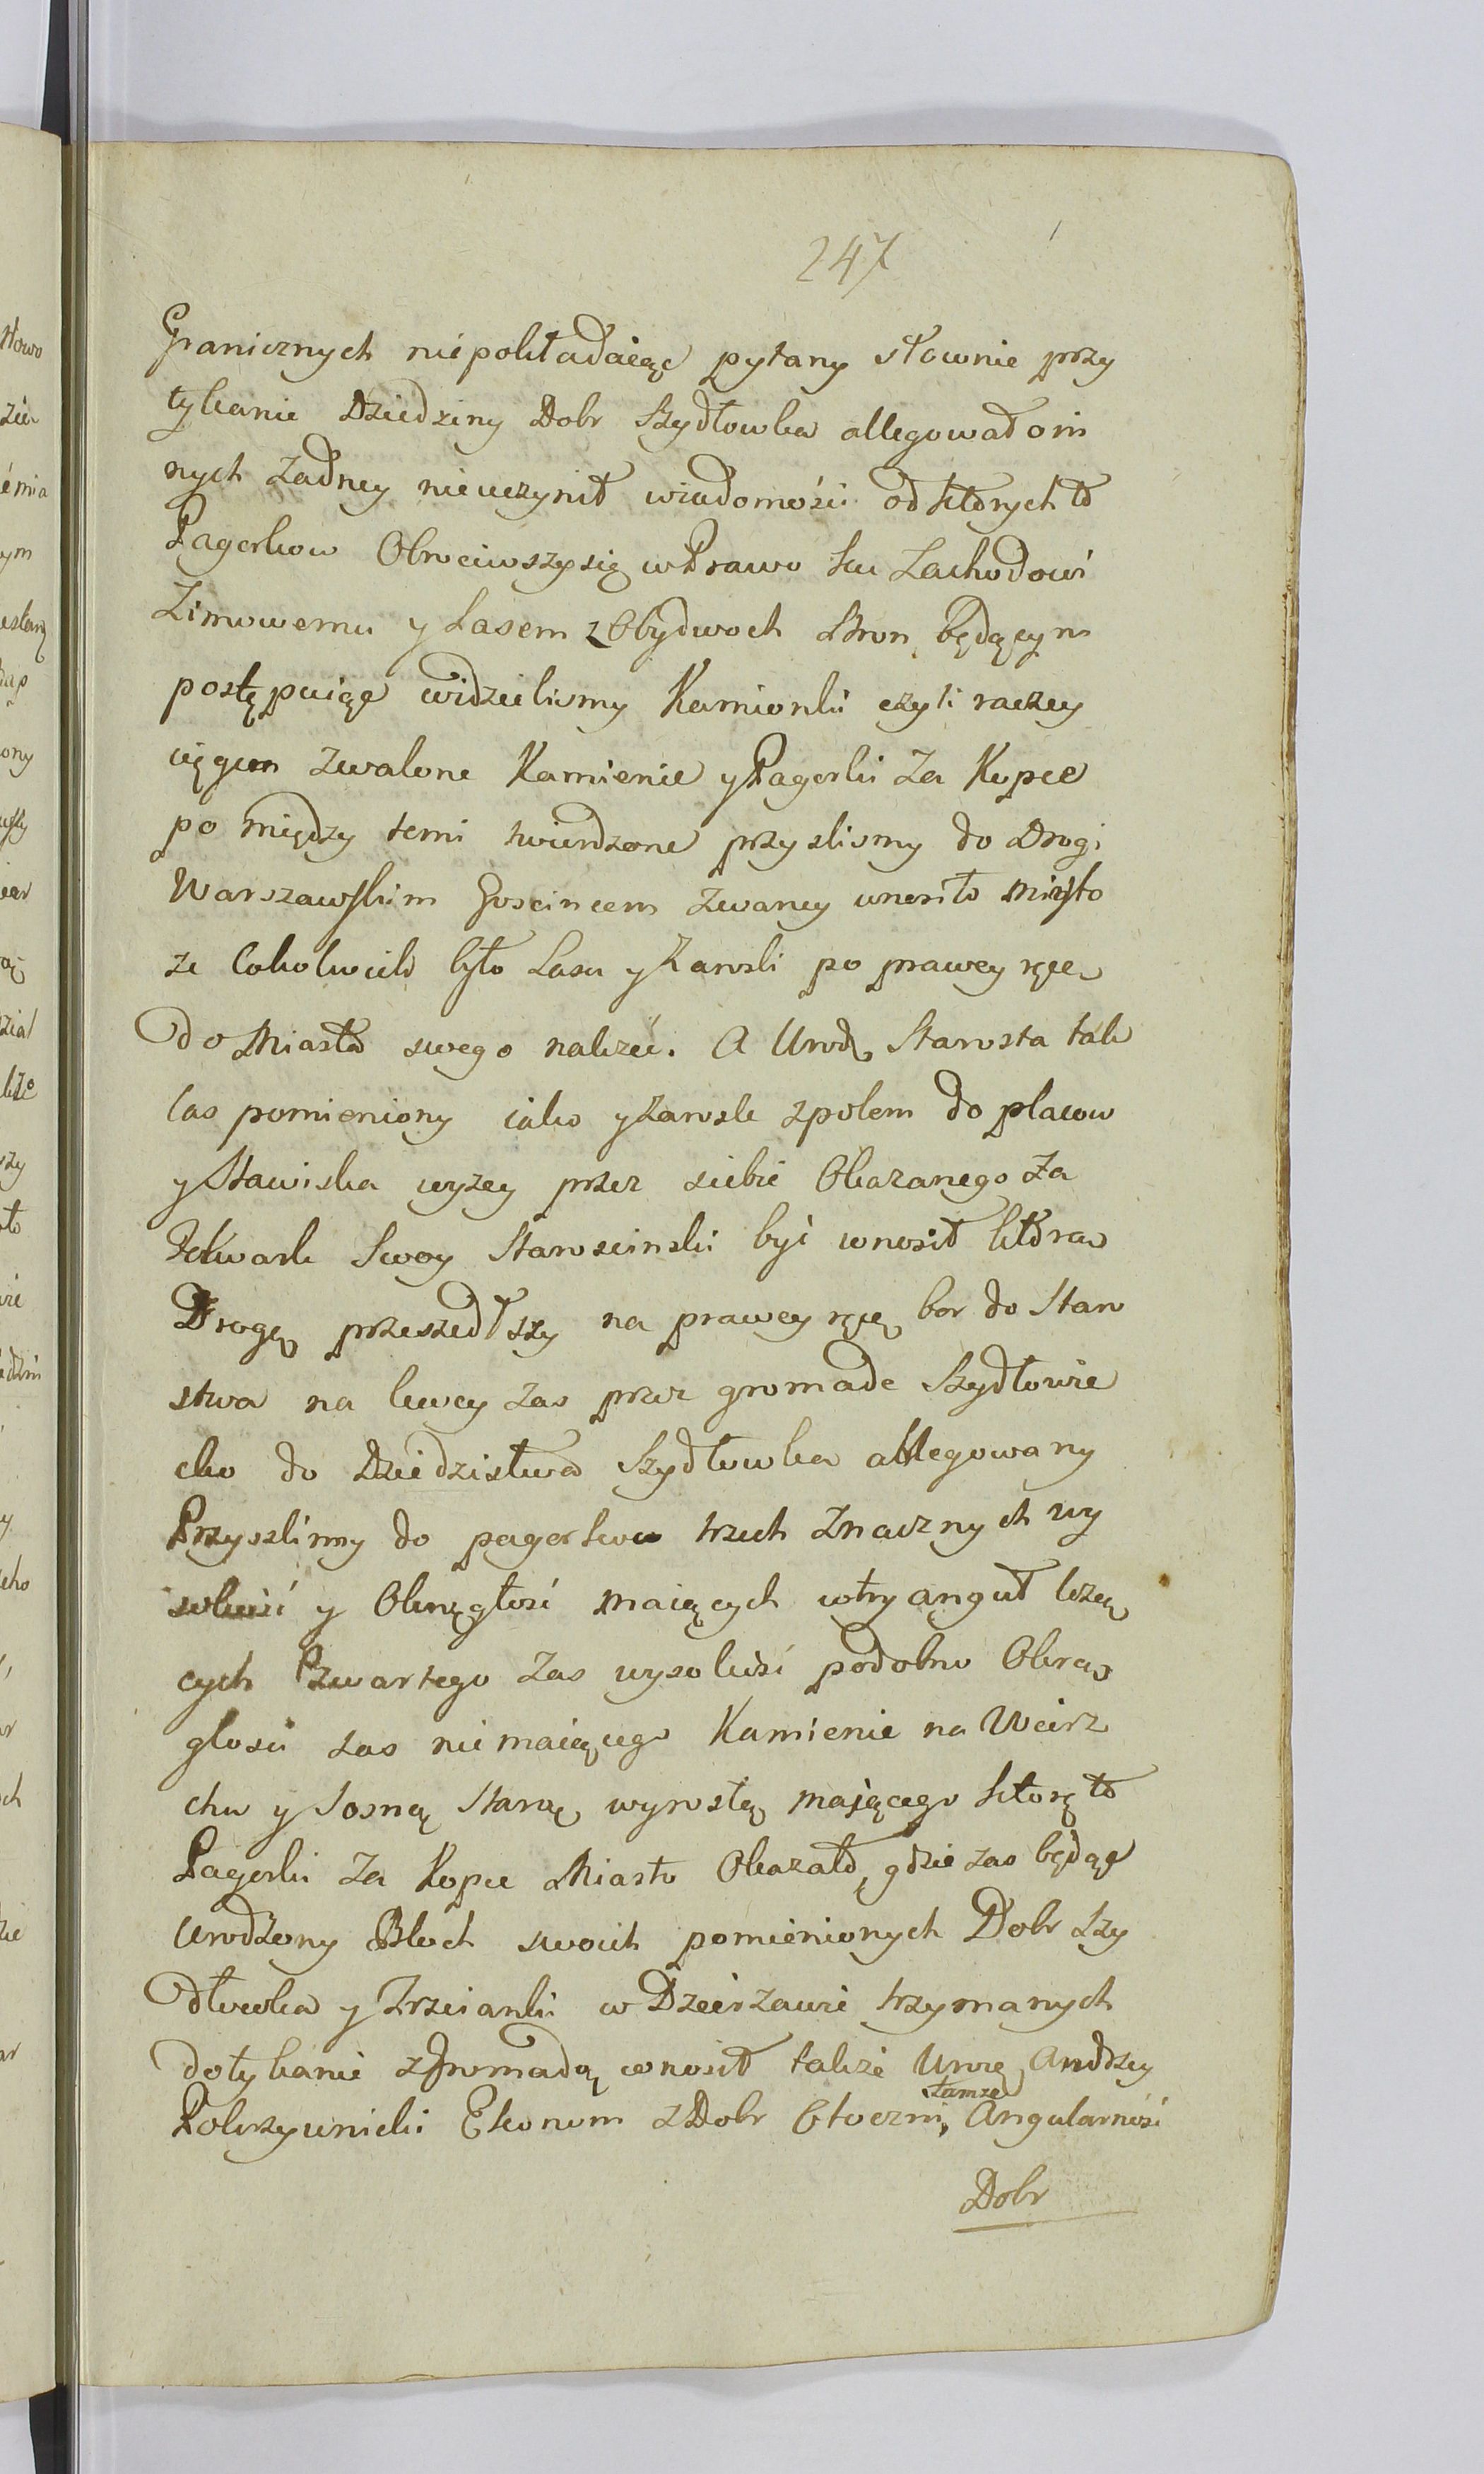 247
Granicznych niepokładaiąc pytany słownie przy
tykanie Dziedziny Dobr Szydłowka allegował oin
nych żadney nieuczynił wiadomości od ktorych to
Pagorkow Obrociwszy się w Prawo ku Zachodowi
Zimowemu y Lasem z Obydwoch Stron będącym
postępuiąc widzielismy Kamionki czyli raczey
ciągiem zwalone Kamienie y Pagorki za Kopce
po między temi twierdzone przyslismy do Drogi
Warszawskim Goscincem zwaney wnosiło Miasto
ze Cokolwiek było Lasu y Zarosli po prawey ręce
do Miasta swego nalezeć. A Urodz Starosta tak
las pomieniony iako y Zarosle z polem do placow
y Stawiska wyzey przez siebie Okazanego za
Folwark Swoy Starosciński być wnosił ktorą
Drogę przeszedłszy na prawey ręce bor do Staro
stwa na lewey zas przez gromade Szydłowie
cko do Dziedzictwa Szydłowka allegowany
Przyszlismy do pagorkow trzech znacznych wy
sokość y Okrągłość maiących w tryanguł leżą
cych Czwartego zas wysokość podobno Okrą
głosci zas nie maiącego Kamienie na Weirz
chu y Sosnę Starą wyrosłą mającego ktorę to
Pagorki za Kopce Miasto Okazało, gdzie zas będąc
Urodzony Bloch swoich pomienionych Dobr Szy
dłowka y Trzcianki w Dzierzawie trzymanych
dotykanie z Gromadą wnosił także Urorę Andrzey
Pokrzywnicki Ekonom z DobrCtoczni, tamże Angularność
Dobr